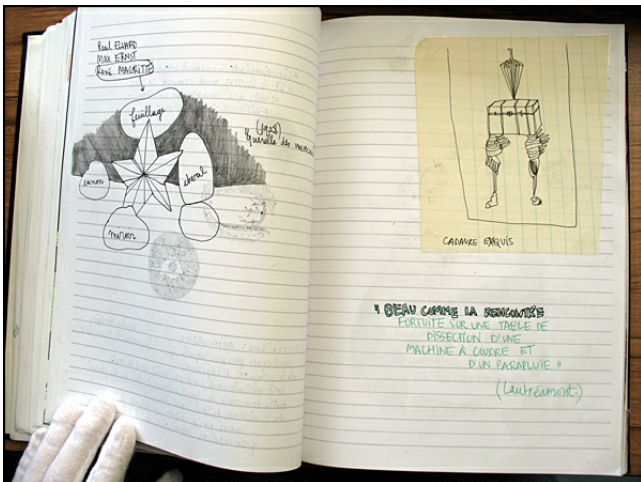 Paul ELUARD
Max ERNST
René MAGRITTE
feuillage
(1928)
"querelle des
canon
cheval
miroir
CADAVRE EXQUIS
"BEAU COMME LA RENCONTRE
FORTUITE SUR UNE TABLE DE
DISSECTION D'UNE
MACHINE À COUDRE ET
D'UN PARAPLUIE"
(Lautréamont)